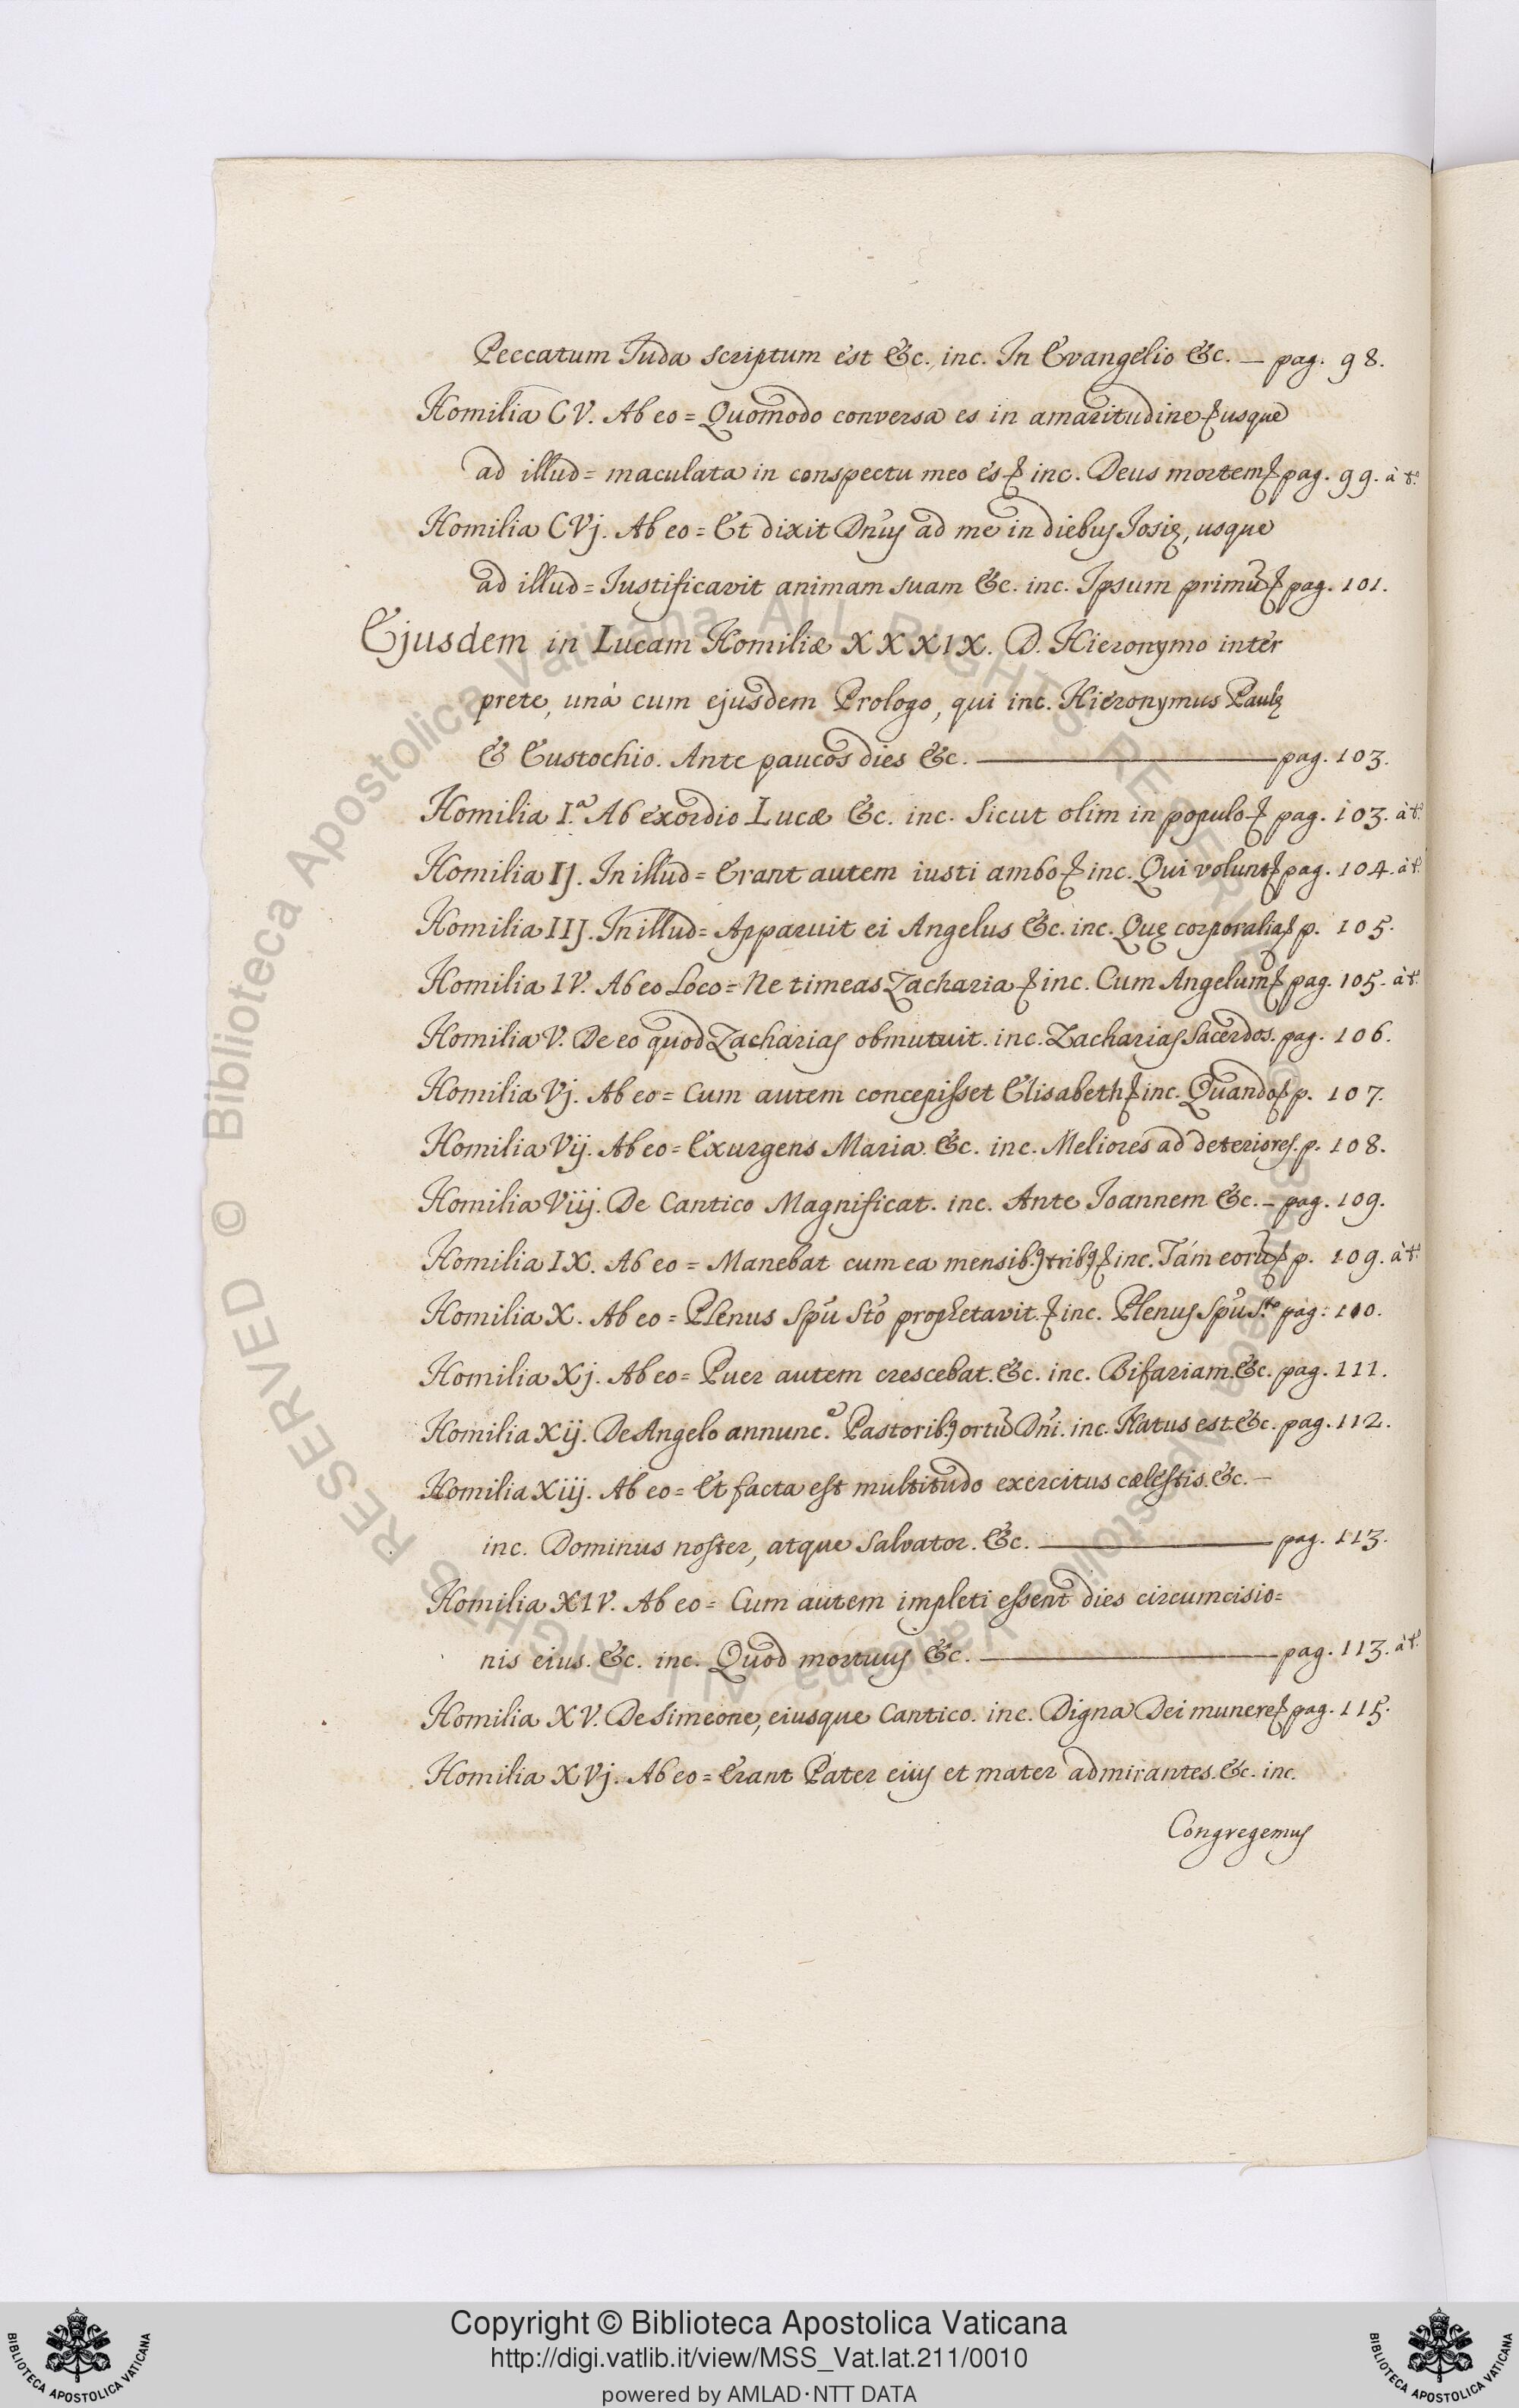 Peccatum Juda scriptum est &c. inc. In Evangelio &c. — pag. 98.
Homilia CV. Ab eo = Quomodo conversa es in amaritudine & usque
ad illud = maculata in conspectu meo es & inc. Deus mortem & pag. 99. à t.º
Homilia CVj. Ab eo = Et dixit Dñus ad me in diebus Josię, usque
ad illud = Justificavit animam suam &c. inc. Ipsum primũ & pag. 101.
Ejusdem in Lucam Homiliæ XXXIX. D. Hieronymo inter
prete, unà cum ejusdem Prologo, qui inc. Hieronymus Paulę
& Eustochio. Ante paucos dies &c. — pag. 103.
Homilia I.ª Ab exordio Lucæ &c. inc. Sicut olim in populo & pag. 103. à t.º
Homilia IJ. In illud = Erant autem iusti ambo & inc. Qui volunt & pag. 104. à t.º
Homilia IIJ. In illud = Apparuit ei Angelus &c. inc. Quę corporalia & p. 105.
Homilia IV. Ab eo Loco = Ne timeas Zacharia & inc. Cum Angelum & pag. 105. à t.º
Homilia V. De eo quod Zacharias obmutuit. inc. Zacharias Sacerdos. pag. 106.
Homilia Vj. Ab eo = Cum autem concepisset Elisabeth & inc. Quando & p. 107.
Homilia Vij. Ab eo = Exurgens Maria &c. inc. Meliores ad deteriores. p. 108.
Homilia Viij. De Cantico Magnificat. inc. Ante Joannem &c. — pag. 109.
Homilia IX. Ab eo = Manebat cum ea mensib9 trib9 & inc. Tám eorũ & p. 109. à t.º
Homilia X. Ab eo = Plenus Spũ Sto prophetavit & inc. Plenus Spũ S.to pag. 110.
Homilia Xj. Ab eo = Puer autem crescebat. &c. inc. Bifariam. &c. pag. 111.
Homilia Xij. De Angelo annunc.e Pastorib9 ortũ Dñi. inc. Natus est. &c. pag. 112.
Homilia Xiij. Ab eo = Et facta est multitudo exercitus cælestis. &c. —
inc. Dominus noster, atque Salvator. &c. — pag. 113.
Homilia XIV. Ab eo = Cum autem impleti essent dies circumcisio=
nis eius. &c. inc. Quod mortuus &c. — pag. 113. à t.º
Homilia XV. De Simeone, eiusque Cantico. inc. Digna Dei munere & pag. 115.
Homilia XVj. Ab eo = Erant Pater eius et mater admirantes. &c. inc.
Congregemus
© Biblioteca Apostolica Vaticana ALL RIGHTS RESERVED
© Biblioteca Apostolica Vaticana ALL RIGHTS RESERVED
Copyright © Biblioteca Apostolica Vaticana
http://digi.vatlib.it/view/MSS_Vat.lat.211/0010
powered by AMLAD·NTT DATA
BIBLIOTECA APOSTOLICA VATICANA
BIBLIOTECA APOSTOLICA VATICANA